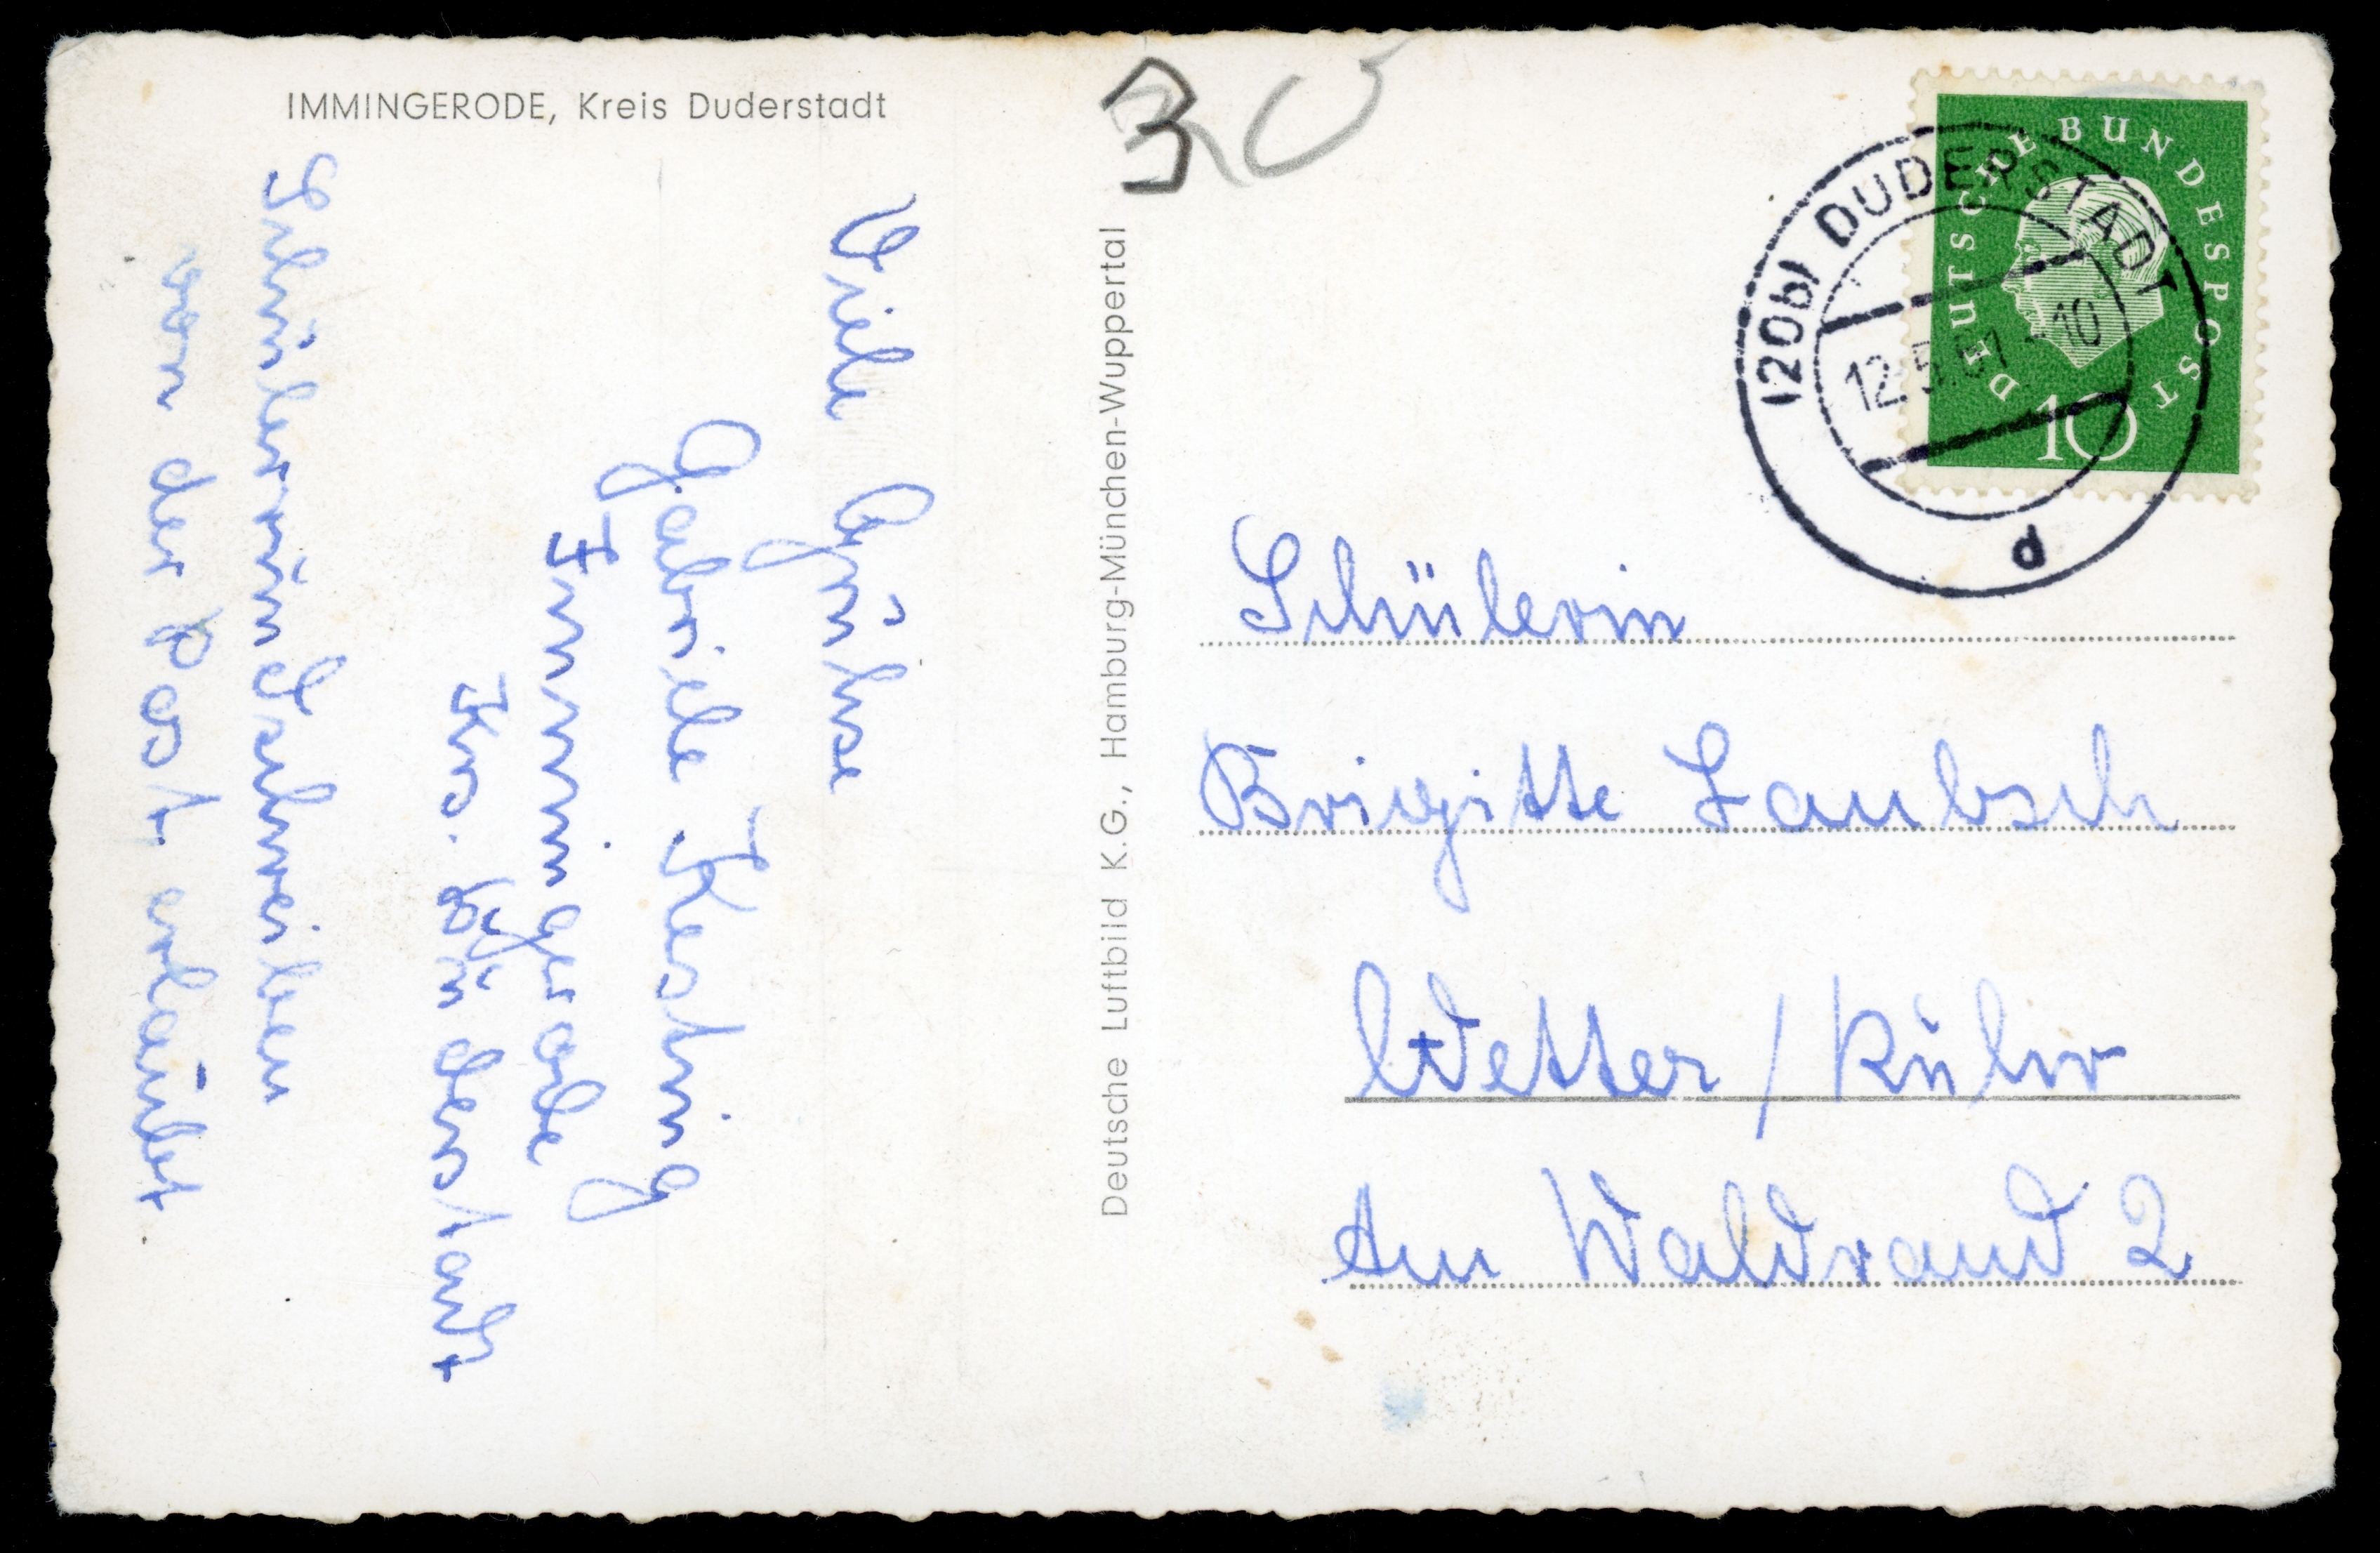 IMMINGERODE, Kreis Duderstadt
Viele Grüße
Gabriele Kesting
Immingerode
Krs. Duderstadt
Schülerinschreiben
von der Post erlaubt
Deutsche Luftbild K.G., Hamburg-München-Wuppertal
30
DEUTSCHE BUNDESPOST
10
(20b) DUDERSTADT
12.5.61-10
d
Schülerin
Brigitte Laubsch
Wetter / Ruhr
Am Waldrand 2